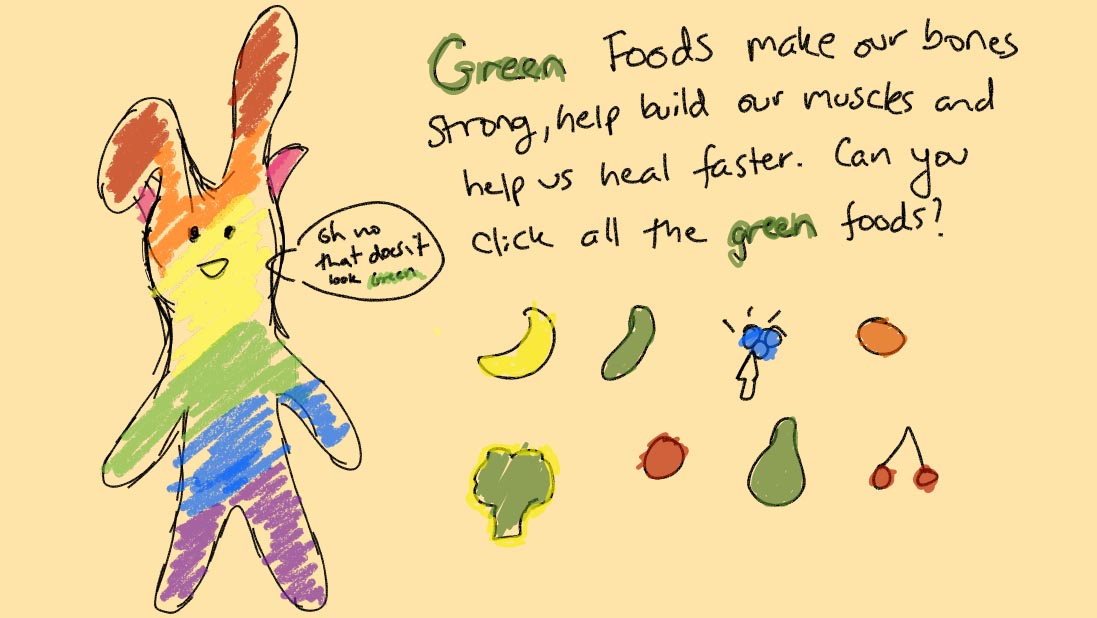 Green Foods make our bones
strong, help build our muscles and
help us heal faster. Can you
click all the green foods?
Oh no
that doesn't
look Green